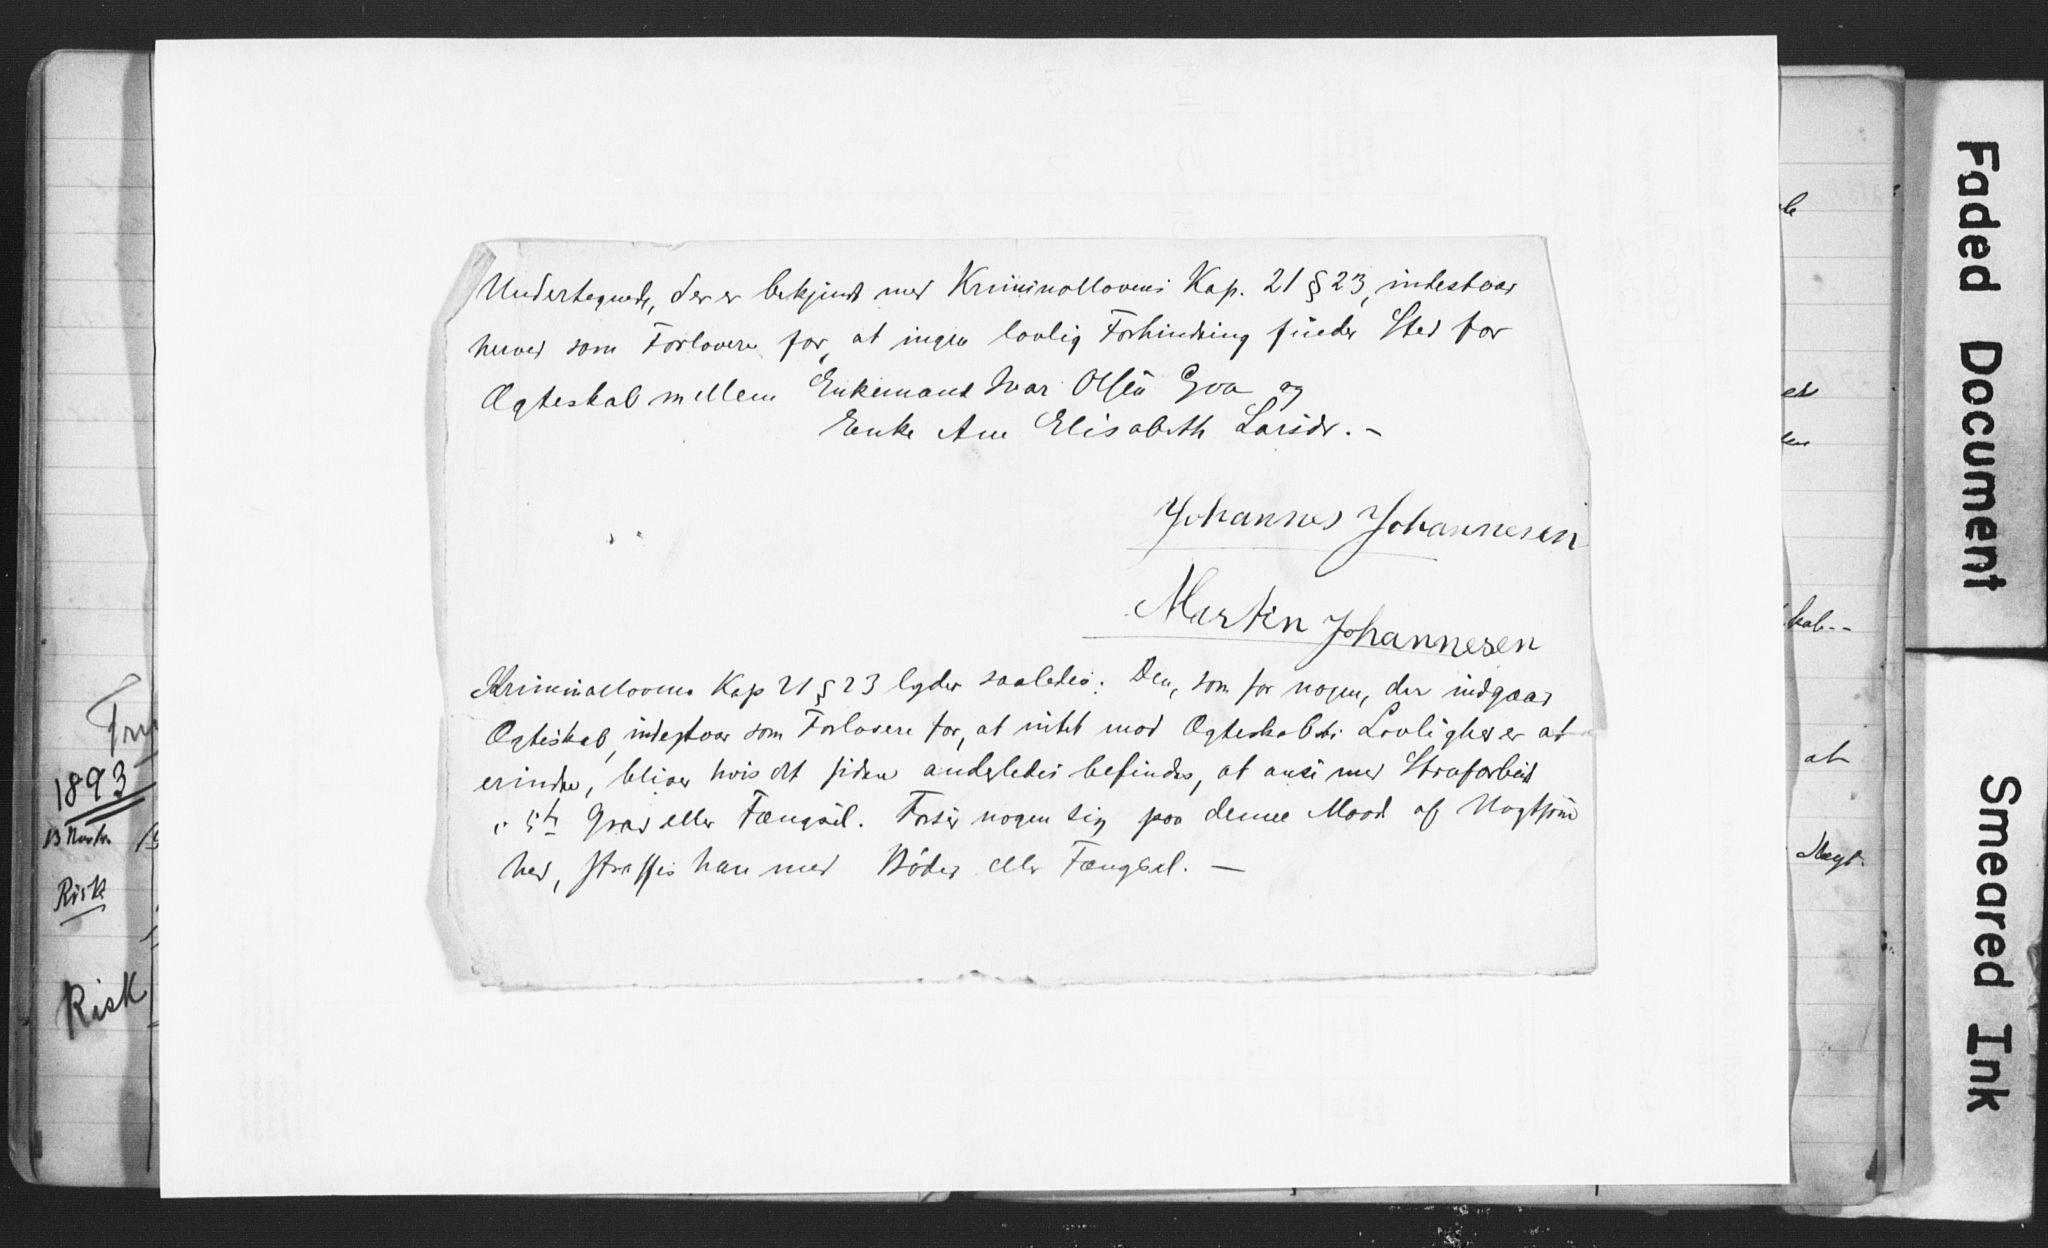 Undertegnede, der er bekjendt med Kriminallovens Kap. 21 § 23, indestaar
herved som Forlovere for, at ingen lovlig Forhindring finder Sted for
Ægteskab mellem Enkemand Ivar Olsen Goa og
Enke Ane Elisabeth Larsdr. -
Johannes Johannesen
Martin Johannesen
Kriminallovens Kap 21 § 23 lyder saaledes: Den, som for nogen, der indgaar
Ægteskab, indestaar som Forlovere for, at intet mod Ægteskabets Lovlighed er at
erindre, bliver hvis det siden anderledes befindes, at ansee med Strafarbeid
i 5te Grad eller Fængsel. Forser nogen sig paa denne Maade af Uagtsom
hed, straffes han med Bøder eller Fængsel. —
1893
Risk
Risk
kab--
at
Faded Document
Smeared Ink